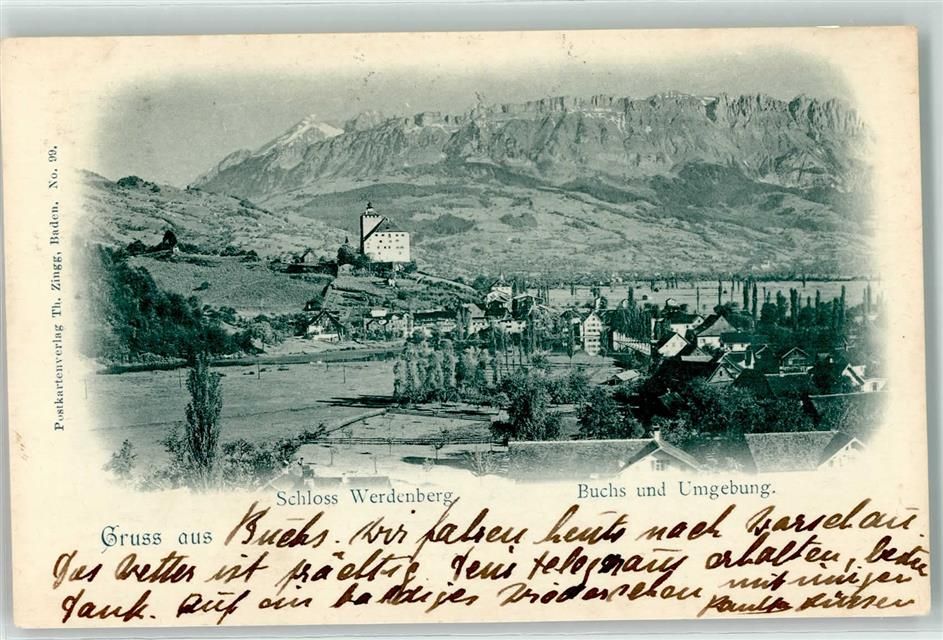 Postkartenverlag Th. Zingg, Baden. No. 99.
Schloss Werdenberg.
Buchs und Umgebung.
Gruss aus Buchs. Wir fahren heute nach Warschau.
Das Wetter ist prächtig. Dein telegram erhalten, besten
dank. Auf ein baldiges wiedersehen mit innigen
Küssen